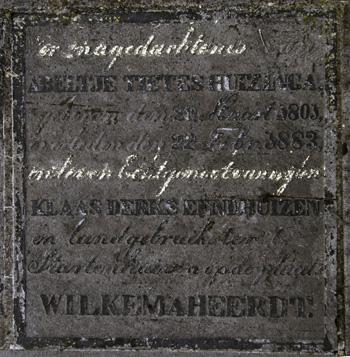 Ter nagedachtenis van
ABELTJE TIETES HUIZINGA,
geboren den 28 Maart 1803,
overleden den 22 Febr. 1883,
in leven Echtgenoote van wijlen
KLAAS DERKS EENDHUIZEN
en landgebruikster te
op de plaats
WILKEMAHEERDT.